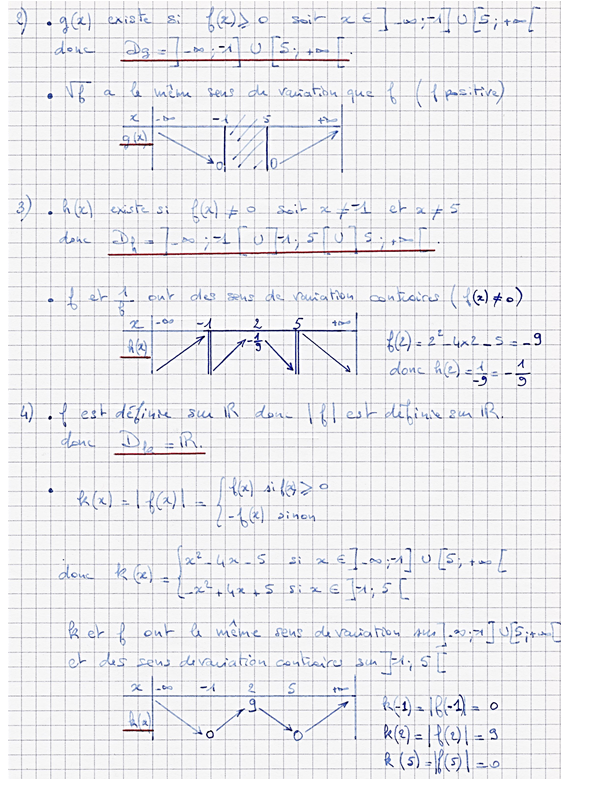 2) • g(x) existe si f(x) ⩾ 0 soit x ∈ ]-∞;-1] ∪ [5;+∞[
donc Dg = ]-∞;-1] ∪ [5;+∞[.
• √f a le même sens de variation que f (f positive)
x -∞ -1 5 +∞
g(x) 0 0
3) • h(x) existe si f(x) ≠ 0 soit x ≠ -1 et x ≠ 5
donc Dh = ]-∞;-1[ ∪ ]-1;5[ ∪ ]5;+∞[.
• f et 1/f ont des sens de variation contraires (f(x) ≠ 0)
x -∞ -1 2 5 +∞
h(x) -1/9
f(2) = 2² - 4×2 - 5 = -9
donc h(2) = 1/-9 = -1/9
4) • f est définie sur ℝ donc |f| est définie sur ℝ.
donc Dk = ℝ.
• k(x) = |f(x)| = { f(x) si f(x) ⩾ 0
-f(x) sinon
donc k(x) = { x² - 4x - 5 si x ∈ ]-∞;-1] ∪ [5;+∞[
-x² + 4x + 5 si x ∈ ]-1;5[
k et f ont le même sens de variation sur ]-∞;-1] ∪ [5;+∞[
et des sens de variation contraires sur ]-1;5[
x -∞ -1 2 5 +∞
k(x) 0 9 0
k(-1) = |f(-1)| = 0
k(2) = |f(2)| = 9
k(5) = |f(5)| = 0